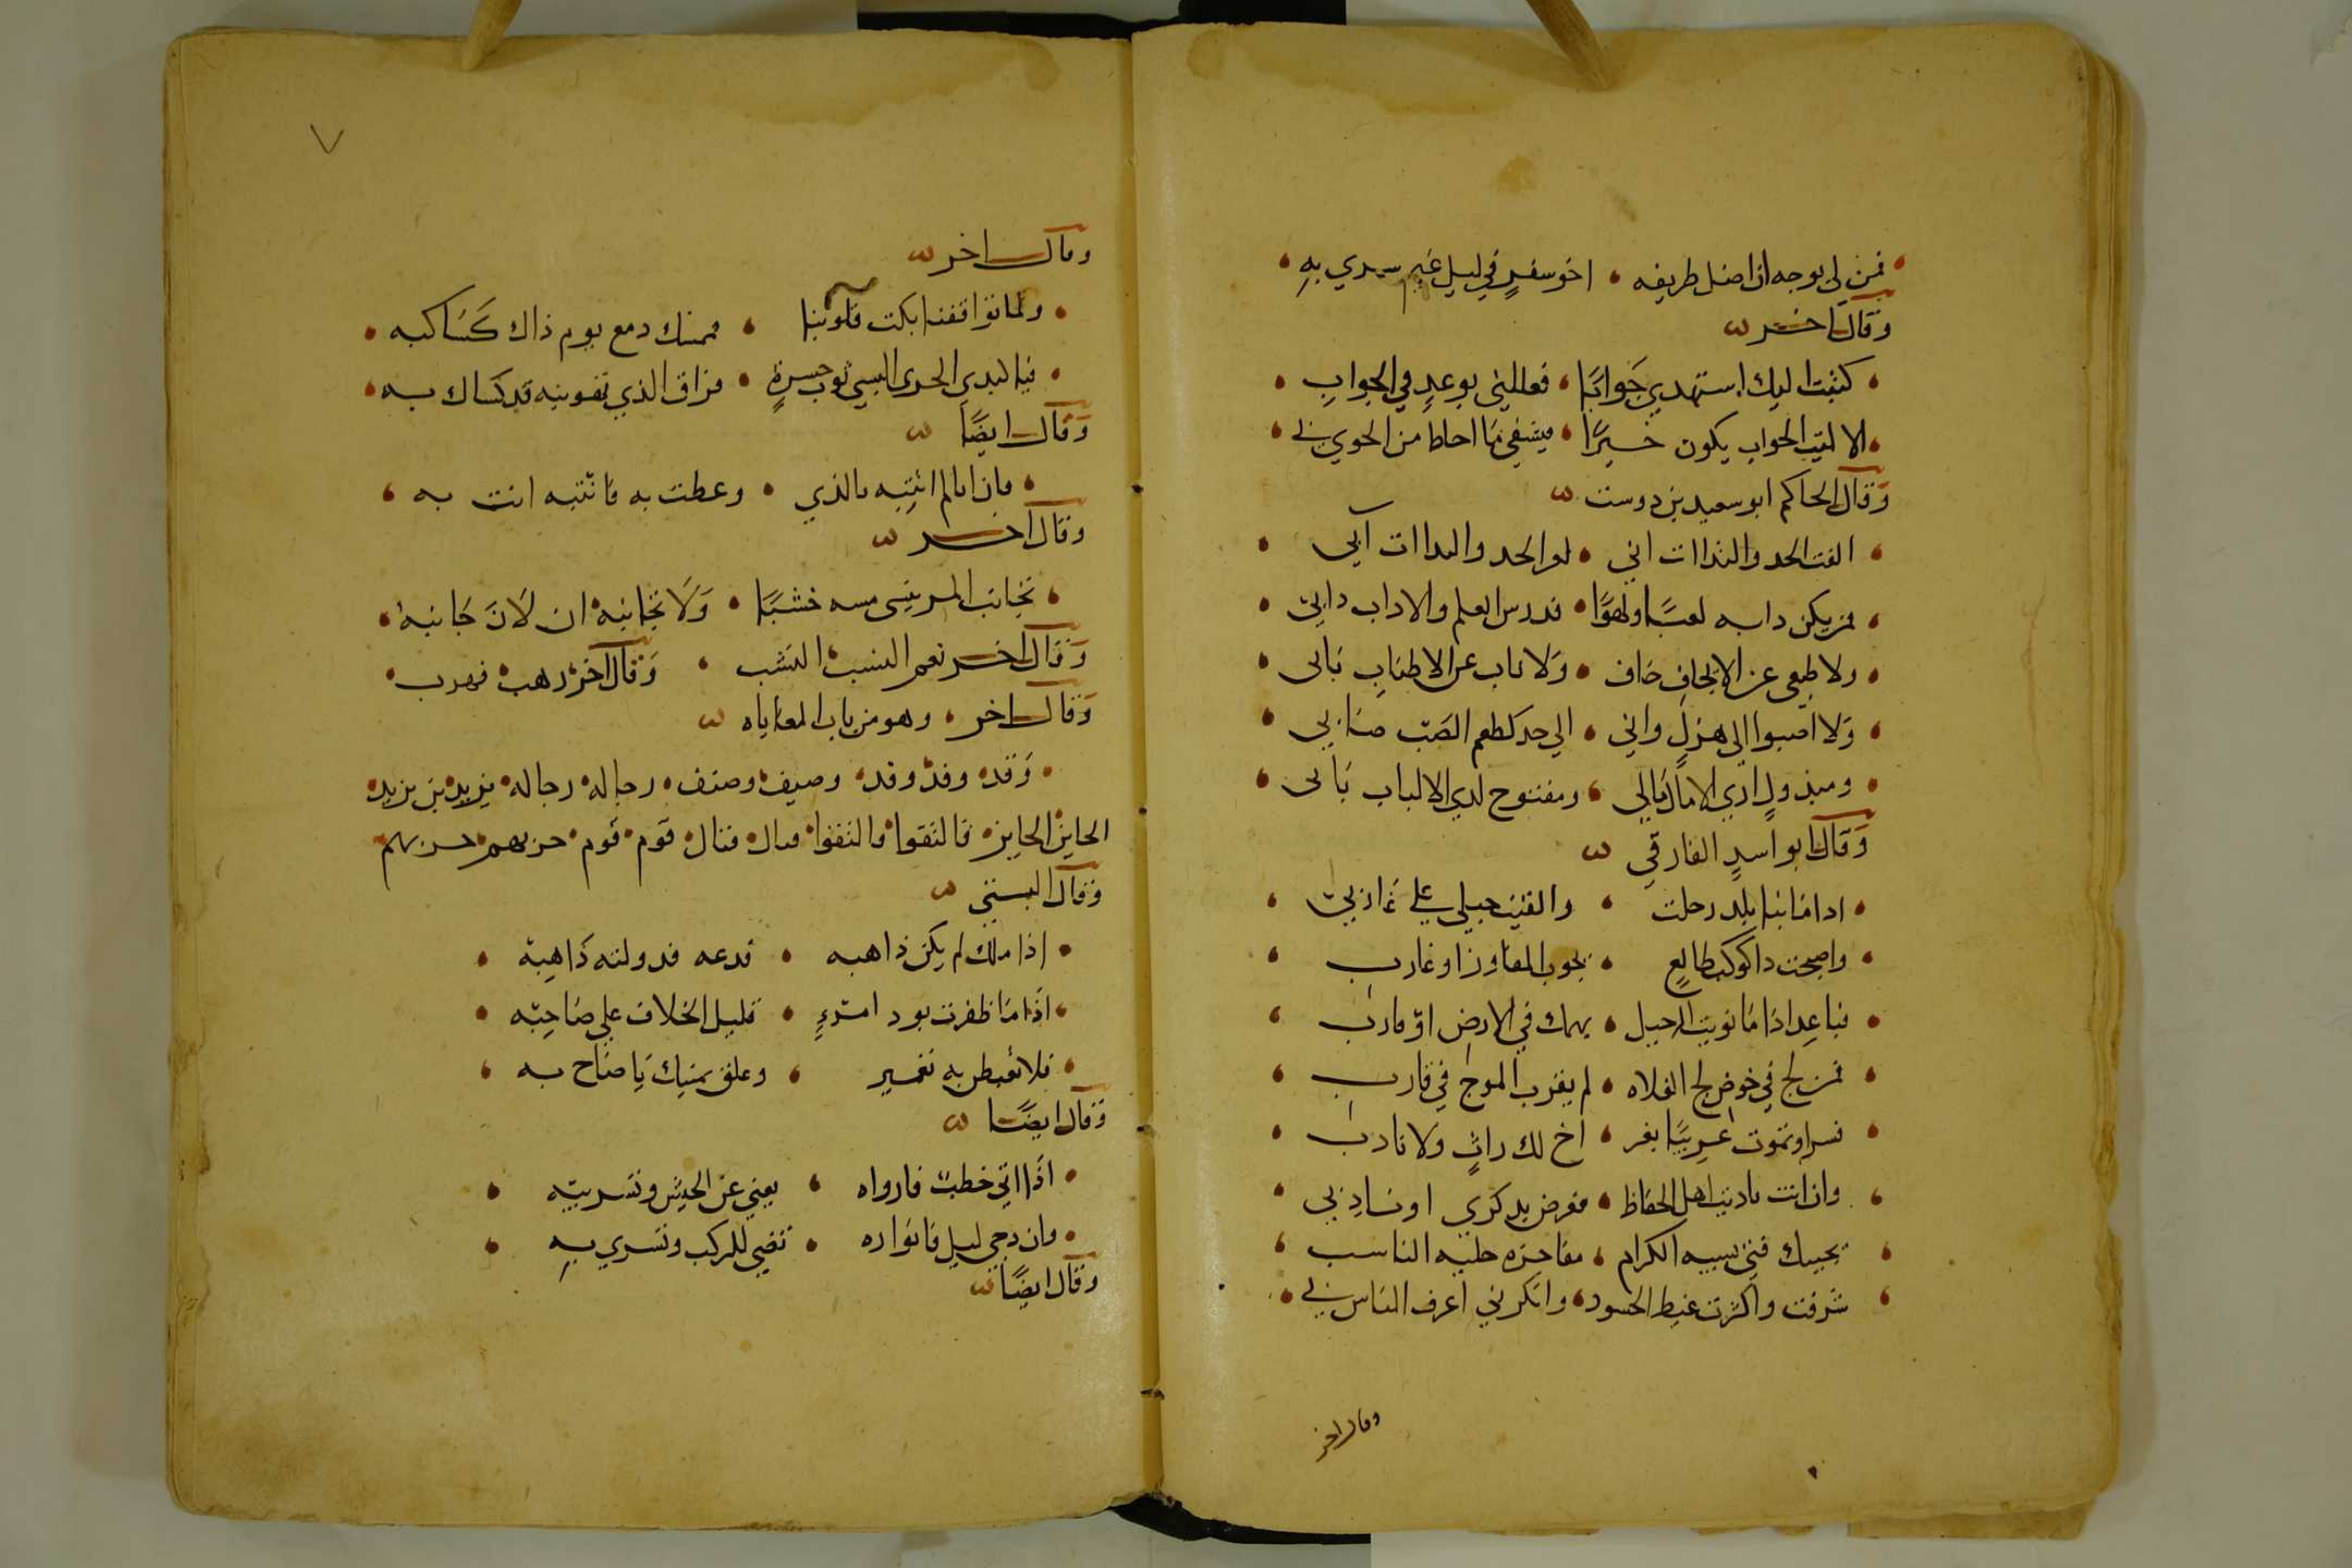 فمن لي بوجه ان اضل طريقه • اخو سفر في ليل غيم سري به
وقال اخر
كتبت اليك استهدي جوابا • فعللني بوعد في الجواب
الا ليت الجواب يكون خيرا • فيشفي ما احاط من الجوي بي
وقال الحاكم ابو سعيد بن دوست
الفت الجد والندات اني • لو الجد والندات آبي
فمن يكن دابه لعبا ولهوا • فدرس العلم والاداب دابي
ولا طبعي عن الايجاف جاف • ولا ناب عن الاطناب نابي
ولا اصبوا الي هزل واني • الي جد كطعم الصب صابي
ومبذول لدي الامال مالي • ومفتوح لدي الالباب بابي
وقال ابو اسد الفارقي
اذا ما نبا بلد رحلت • والقيت حبلي علي غاربي
واصبحت ذا كوكب طالع • بجوب المفاوز او غارب
فباعد اذا ما نويت الرحيل • بهمك في الارض او قارب
فمن لج في خوض لج الفلاه • لم يقرب الموج في قارب
وان انت ناديت اهل الحفاظ • فعرض بذكري او ناد بي
يجيبك فتى الكرام • مفاخره حلية الناسب
شرفت واكثرت غيظ الحسود • وانكرني اعرف الناس بي
وقال اخر
٧
وقال اخر
ولما توافقنا بكت قلوبنا • فممسك دمع يوم ذاك كساكبه
فيا كبدي الحرى البسي ثوب حسرة • فراق الذي تهوينه قد كساك به
وقال ايضا
فان انا لم انته بالذي • وعظت به فانته انت به
وقال اخر
تجانب المر يبسى مسه خشبا • ولا تجانبه ان لان جانبه
وقال اخر نعم النسب النشب • وقال اخر رهب فهرب
وقال اخر • وهو من باب المعاياه
وقد وفد وفد وصيف وصنف رجاله رجاله يزيد بن يزيد
الحاين الحايز فالتقوا فالتفوا فتال قوم قوم حزبهم
وقال البستي
اذا ملك لم يكن ذاهبه • فدعه فدولته ذاهبه
اذا ما ظفرت بود امرء • قليل الخلاف علي صاحبه
فلا تغبطن به • وعلق يمينك يا صاح به
وقال ايضا
اذا اتي خطب فارواه • يغني عن الجيش وتسريبه
وان دجي ليل فانواره • تضي للركب وتسري به
وقال ايضا